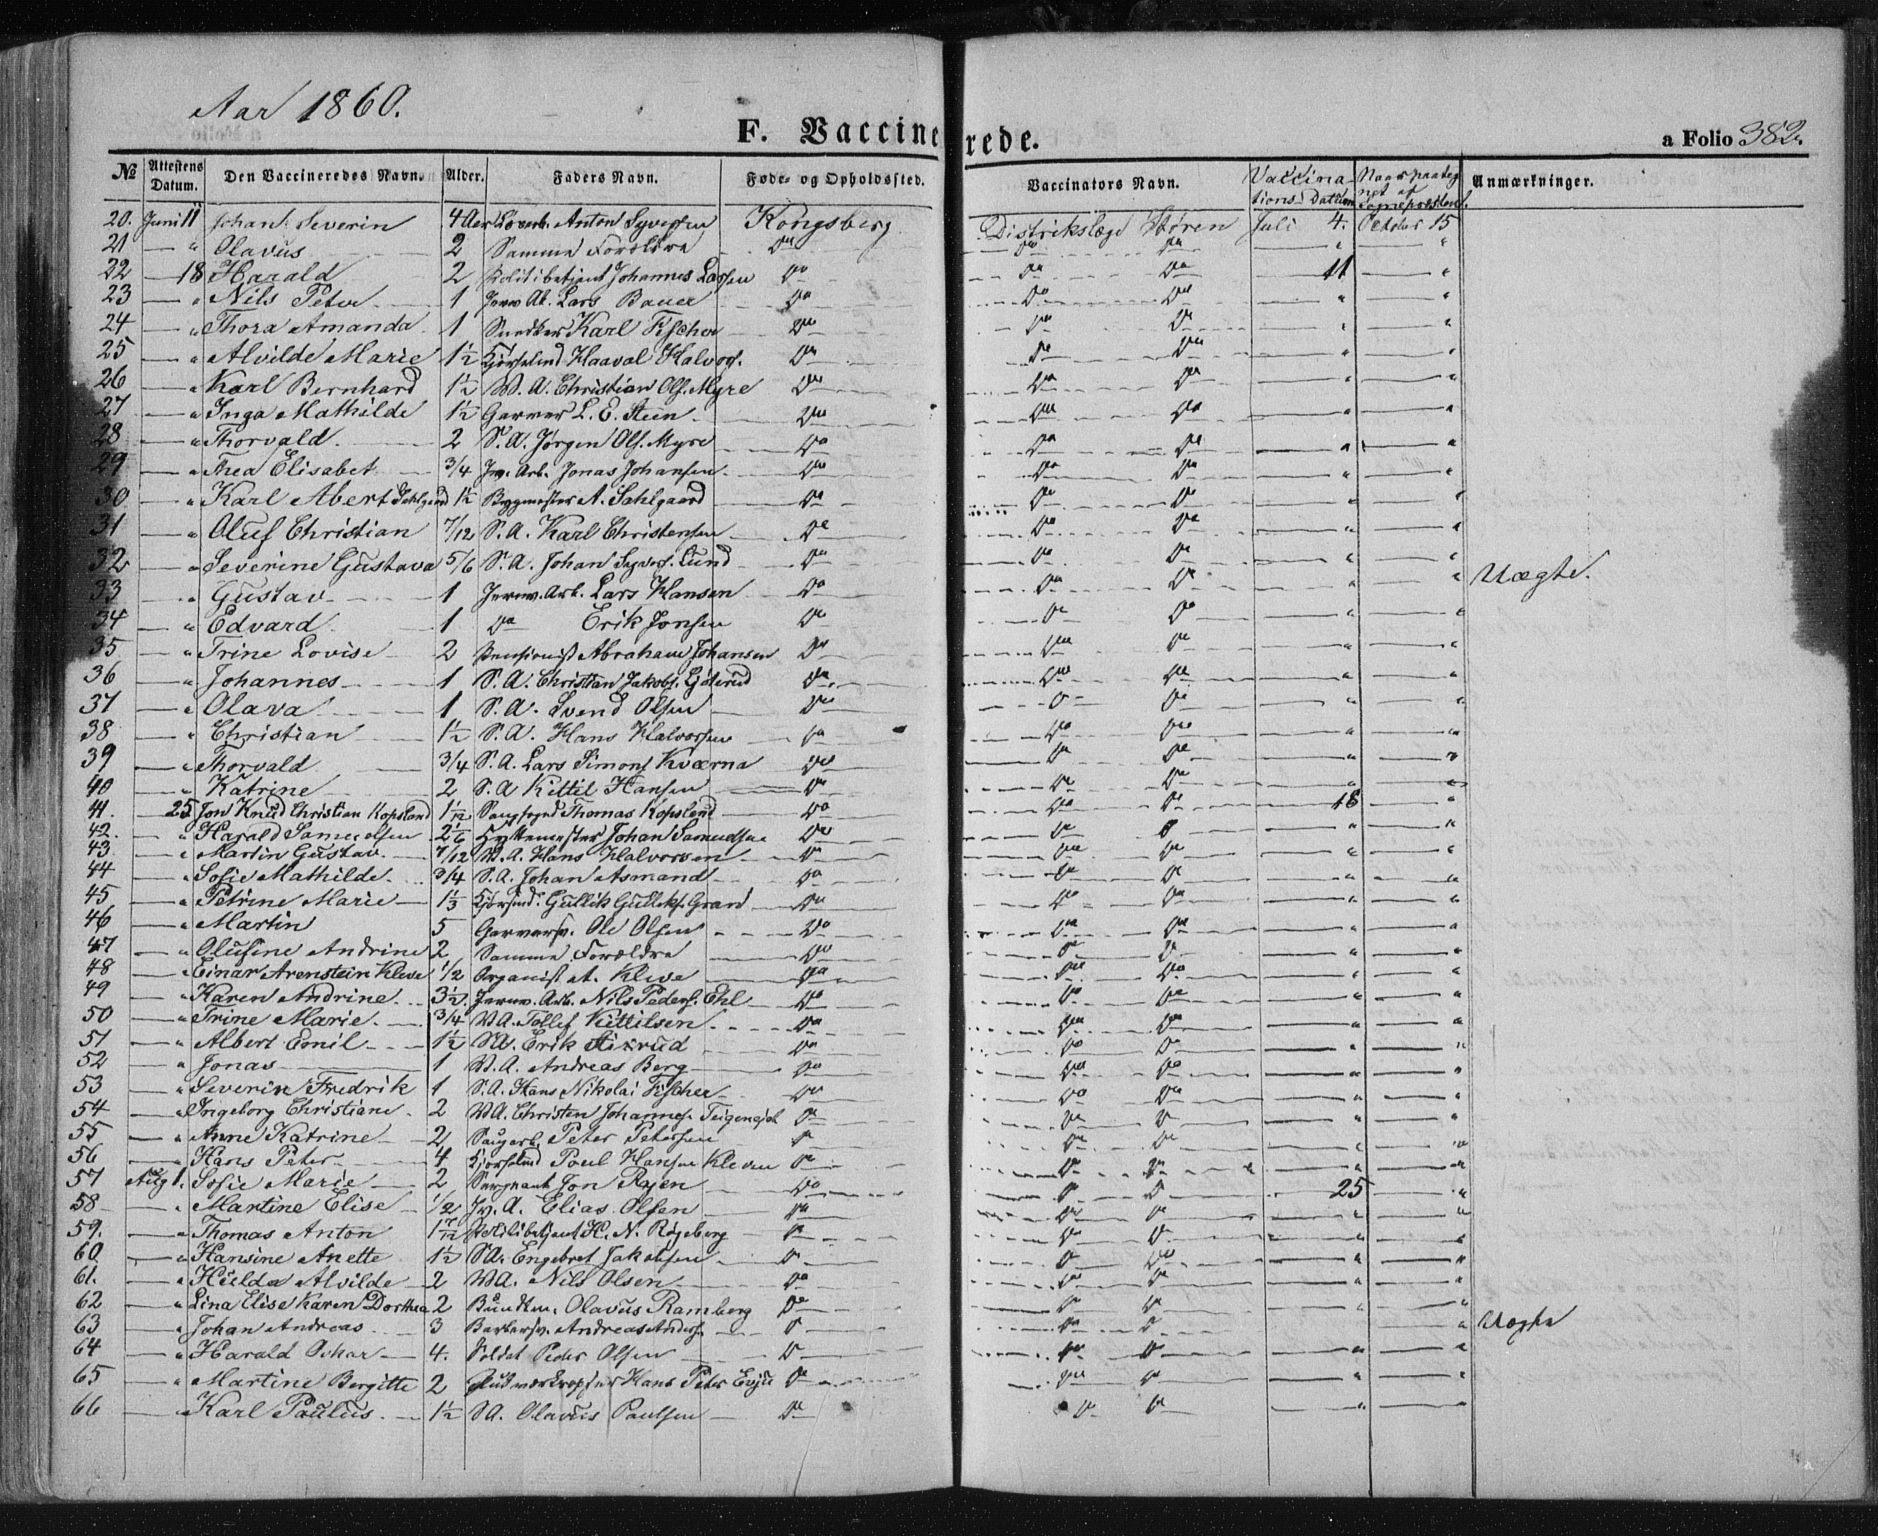 Aar 1860.
F. Vaccinerede.
a Folio 382.
№ Attestens Datum. Den Vaccineredes Navn. Alder. Faders Navn. Føde- og Opholdssted. Vaccinators Navn. Vaccinations Datum Naar paategnet af Anmærkninger.
20. Juni 11 Johan Severin 4 Anton Syversen Kongsberg Distrikslæge Støren Juli 4. October 15
21 " Olavus 2 Samme Forældre Do Do Do " "
22 18 Harald 2 Politibetjent Johannes Larsen Do Do Do 11 "
23 " Nils Peter 1 Jernv. Ab. Lars Bauer Do Do Do " "
24 " Thora Amanda 1 Snedker Karl Fischer Do Do Do " "
25 " Alvilde Marie 1½ Haaval Halvors. Do Do Do " "
26 " Karl Bernhard 1½ V. A. Christian Ols. Myre Do Do Do " "
27 " Inga Mathilde 1½ Garver L. E. Stein Do Do Do " "
28 " Thorvald 2 S. A. Jørgen Ols. Myre Do Do Do " "
29 " Thea Elisabet 3/4 Jv. Arb. Jonas Johansen Do Do Do " "
30 " Karl Abert Sahlgaard 1½ Bygmester A. Sahlgaard Do Do Do " "
31 " Oluf Christian 7/12 S. A. Karl Christensen Do Do Do " "
32 " Severine Gustava 5/6 S. A. Johan Syvers. Lund Do Do Do " " Uægte.
33 " Gustav 1 Jernv. Arb. Lars Hansen Do Do Do " "
34 " Edvard 1 Do Erik Jonsen Do Do Do " "
35 " Trine Lovise 2 Pensionist Abraham Johansen Do Do Do " "
36 " Johannes 1 S. A. Christian Jakobs. Do Do Do " "
37 " Olava 1 S. A. Svend Olsen Do Do Do " "
38 " Christian 1½ S. A. Hans Halvorsen Do Do Do " "
39 " Thorvald 3/4 S. A. Lars Simons Kværna Do Do Do " "
40 " Katrine 2 S. A Kittil Hansen Do Do Do " "
41. 25 Jon Knud Christian Kopsland 1 1/12 Thomas Kopsland Do Do Do 18 "
42. " Harald Samuelsen 2 1/6 Hyttemester Johan Samuelsen Do Do Do " "
43. " Martin Gustav 7/12 V. A. Hans Halvorsen Do Do Do " "
44 " Sofie Mathilde 3/4 S. A. Johan Asmand Do Do Do " "
45 " Petrine Marie 1⅓ Gullik Gulliks. Do Do Do " "
46 " Martin 5 Garversv. Ole Olsen Do Do Do " "
47 " Olufine Andrine 2 Samme Forældre Do Do Do " "
48 " Einar Arenstein Kleve 1/2 Organist A. Kleve Do Do Do " "
49 " Karen Andrine 3½ Jernv. Arb. Nils Peders. Do Do Do " "
50 " Trine Marie 3/4 V. A. Tollef Kittilsen Do Do Do " "
51 " Albert Emil 1½ S. A. Erik Do Do Do " "
52 " Jonas 1 V. A. Andreas Berg Do Do Do " "
53 " Severin Fredrik 1 S. A. Hans Nikolai Fischer Do Do Do " "
54 " Ingeborg Christiane 2 V. A. Christen Johannes. Do Do Do " "
55 " Anne Katrine 2 Peter Petersen Do Do Do " "
56 " Hans Peter 4 Poul Hansen Kleven Do Do Do " "
57 Aug 1. Sofie Marie 2 Sergeant Jon Do Do Do 25 "
58 " Martine Elise 1/2 Jv. A. Elias Olsen Do Do Do " "
59. " Thomas Anton 1 7/12 Politibetjent H. N. Røgeberg Do Do Do " "
60 " Hansine Anette 1½ S. A. Engebret Jakobsen Do Do Do " "
61. " Hilda Alvilde 2 V. A. Nils Olsen Do Do Do " "
62 " Lina Elise Karen Dorthea 2 Olavus Ramberg Do Do Do " "
63 " Johan Andreas 3 Barbersv. Andreas Anders. Do Do Do " " Uægte
64 " Harald Oskar 4. Soldat Peder Olsen Do Do Do " "
65 " Martine Bergitte 2 Hans Peter Evju Do Do Do " "
66 " Karl Paulus 1½ S. A. Olavus Paulsen Do Do Do " "